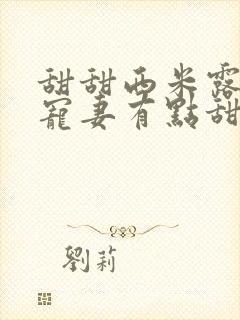 甜甜西米露
寵妻有點甜
劉莉